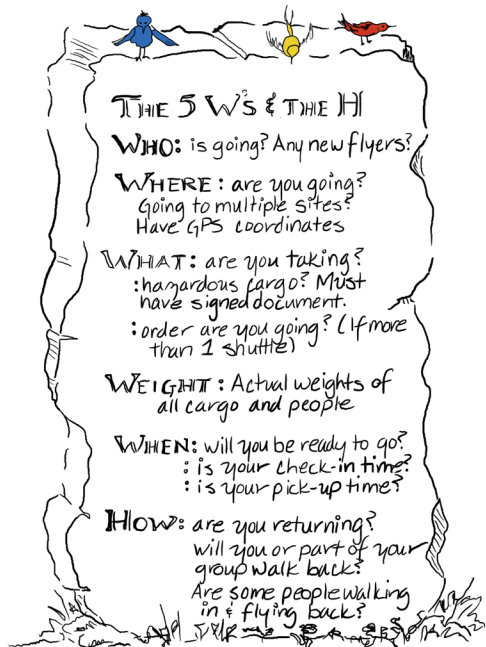 THE 5 W'S & THE H
WHO: is going? Any new flyers?
WHERE: are you going?
Going to multiple sites?
Have GPS coordinates
WHAT: are you taking?
:hazardous cargo? Must
have signed document.
:order are you going? (If more
than 1 shuttle)
WEIGHT: Actual weights of
all cargo and people
WHEN: will you be ready to go?
: is your check-in time?
: is your pick-up time?
HOW: are you returning?
will you or part of your
group walk back?
Are some people walking
in & flying back?